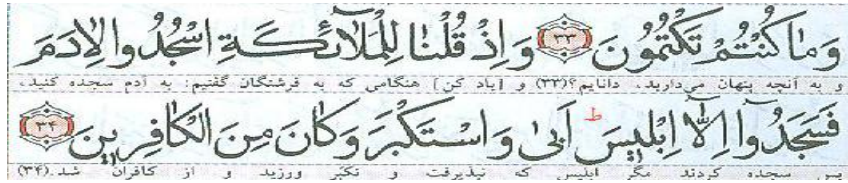 وَمَا كُنْتُمْ تَكْتُمُونَ ﴿۳۳﴾ وَاِذْ قُلْنَا لِلْمَلٰٓائِكَةِ اسْجُدُوا لِاٰدَمَ
و به آنچه پنهان می‌دارید، دانایم؟(۳۳) و [یاد کن] هنگامی که به فرشتگان گفتیم: به آدم سجده کنید،
فَسَجَدُٓوا اِلَّٓا اِبْلٖيسَ ط اَبٰى وَاسْتَكْبَرَ وَكَانَ مِنَ الْكَافِرٖينَ ﴿۳۴﴾
پس سجده کردند مگر ابلیس که نپذیرفت و تکبّر ورزید و از کافران شد.(۳۴)